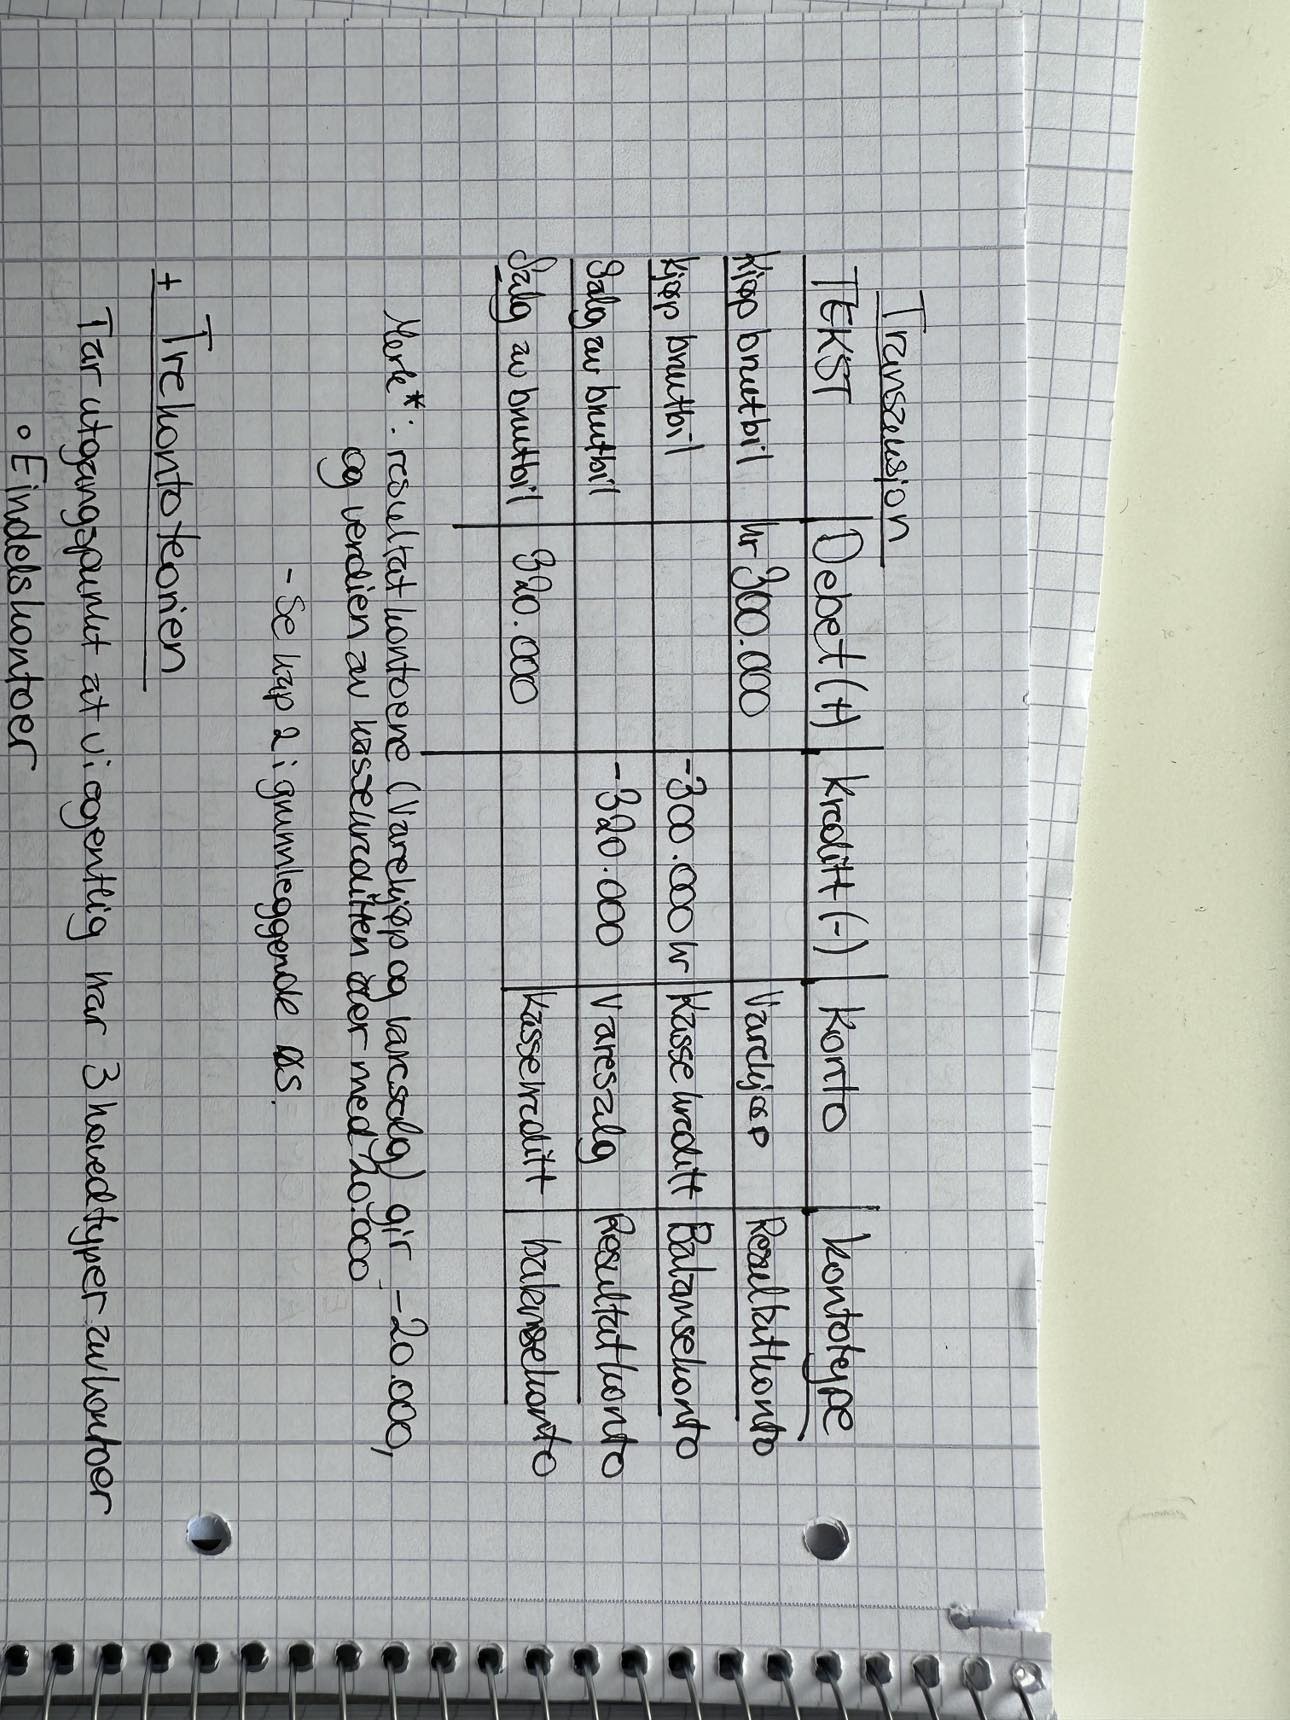 Transaksjon
TEKST Debet (+) Kreditt (-) Konto Kontotype
Kjøp bruktbil kr 300.000 Varekjøp Resultatkonto
Kjøp bruktbil -300.000 kr Kassekreditt Balansekonto
Salg av bruktbil -320.000 Varesalg Resultatkonto
Salg av bruktbil 320.000 Kassekreditt balansekonto
Merk*: resultatkontoene (Varekjøp og varesalg) gir -20.000,
og verdien av kassekreditten øker med 20.000
- Se kap 2 i grunnleggende ØS.
+ Trekontoteorien
Tar utgangspunkt at vi egentlig har 3 hovedtyper av kontoer
o Eindelskontoer